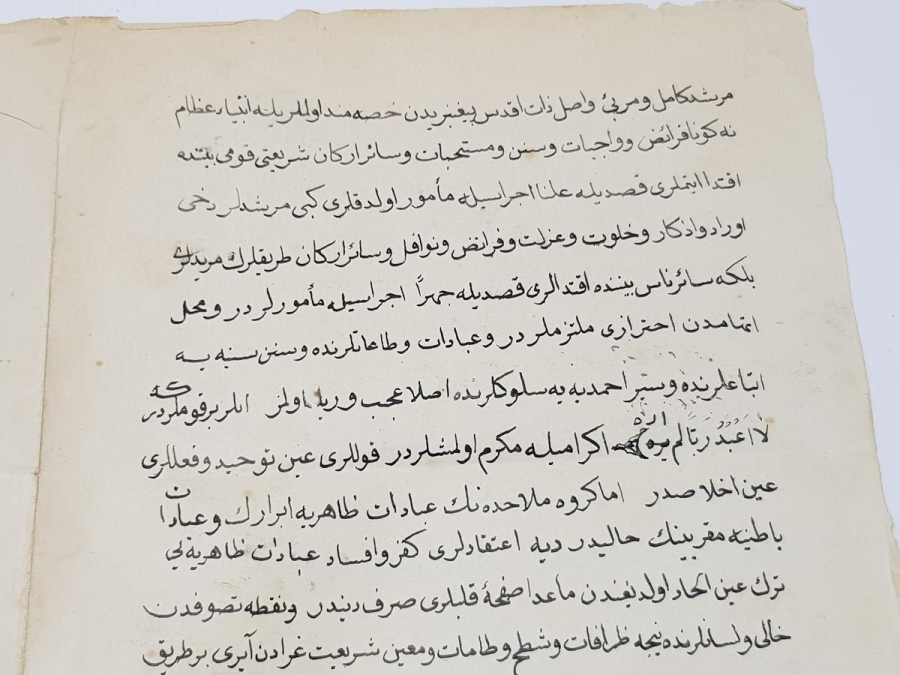 مرشد كامل و مربئ واصل ذات اقدس پيغنبريدن خصه مند اولملريله انبياء عظام
نه كونا فرائض و واجبات و سنن و مستحبات و سائر اركان شريعتى قومى بيننده
اقتدا ايتملرى قصديله علنا اجراسيله مأمور اولدقلرى كبى مرشدلر دخى
اوراد و اذكار و خلوت و عزلت و فرائض و نوافل و سائر اركان طريقلرك مريدلرى
بلكه سائر ناس بيننده اقتدالرى قصديله جهراً اجراسيله مأمورلر در و محل
اتهامدن احترازى ملتزملر در و عبادات و طاعاتلرنده و سنن سنيه يه
اتباعلرنده و سير احمديه يه سلوكلرنده اصلا عجب و ريا اولمز انلر بر قوملردر كه
لا اعبد ربا لم اره اكراميله مكرم اولمشلردر قوللرى عين توحيد و فعللرى
عين اخلاصدر اما كروه ملاحده نك عبادات ظاهريه ابرارك و عبادات
باطنيه مقربينك حاليدر ديه اعتقادلرى كفر و افساد عبادات ظاهريه يى
ترك عين الحاد اولديغندن ماعدا صفحهٔ قلبلرى صرف دنيدر و نقطه تصوفدن
خالى و لسانلرنده نيجه ظرافات و شطح و طامات و معين شريعت غرادن آيرى بر طريق